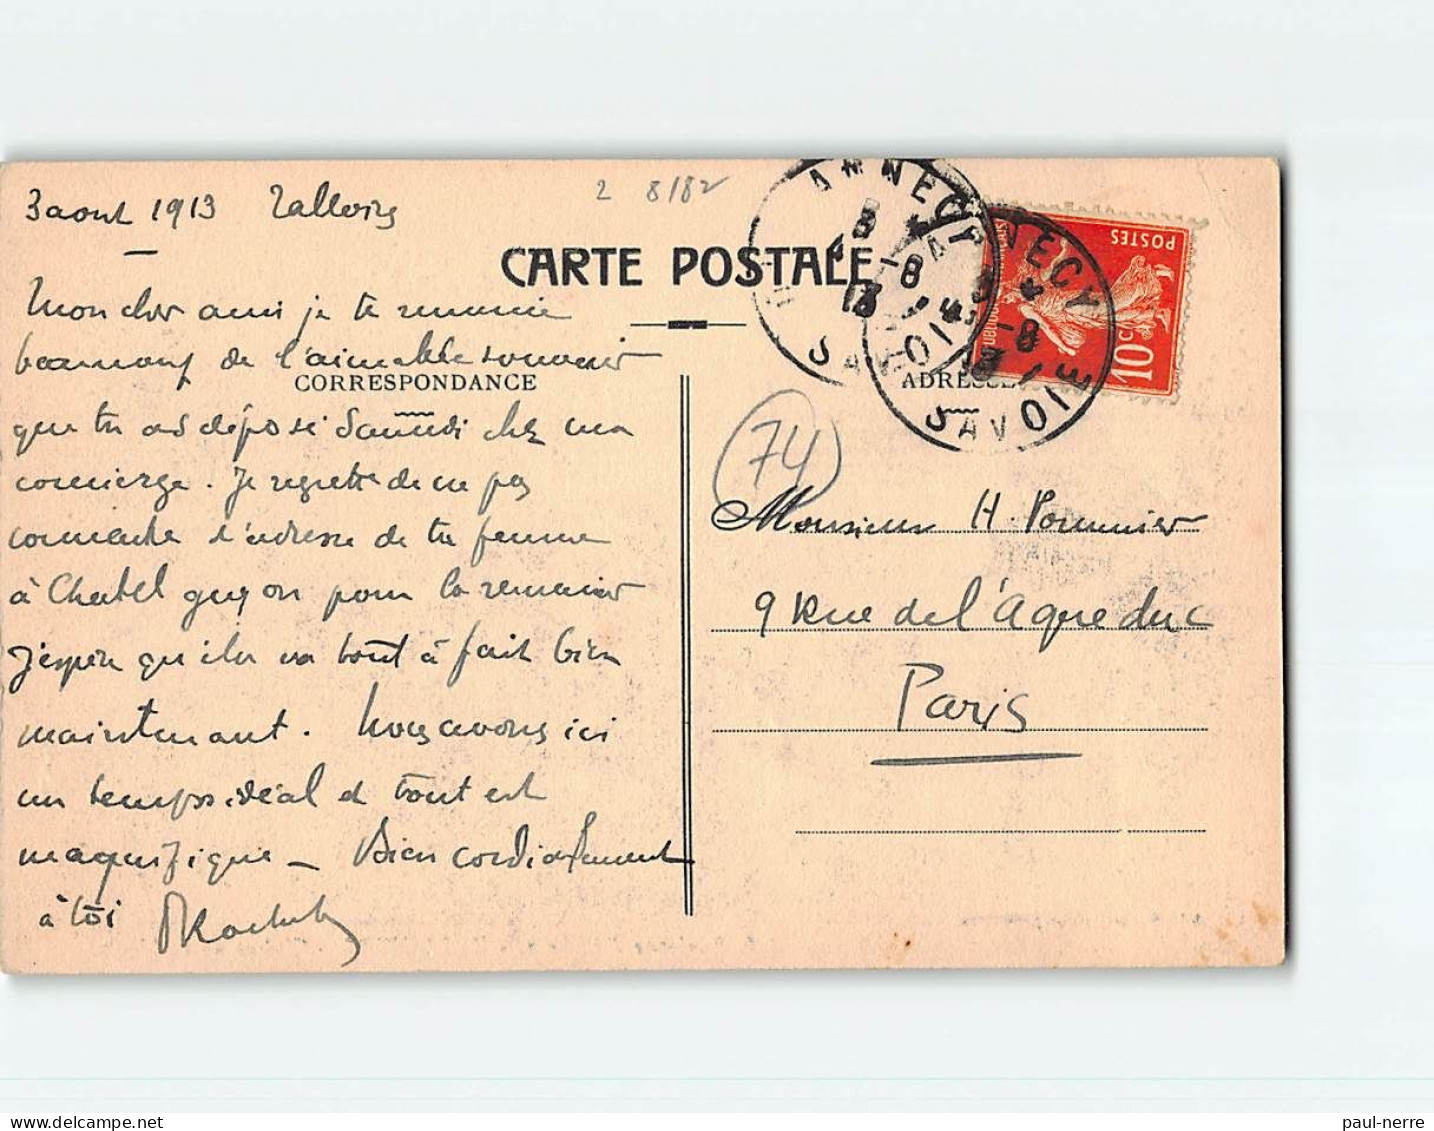 3 aout 1913 Talloires
2 8/82
CARTE POSTALE
CORRESPONDANCE
Mon cher ami je te remercie
beaucoup de l'aimable souvenir
que tu as déposé Samedi chez ma
concierge. Je regrette de ne pas
connaitre l'adresse de ta femme
à Chatel guyon pour la remercier
J'espère qu'elle va tout à fait bien
maintenant. Nous avons ici
un temps idéal et tout est
magnifique _ Bien cordialement
à toi
ANNECY
3 -8 13
SAVOIE
ANNECY
3 -8 13
SAVOIE
POSTES
10c
ADRESSE
74
Monsieur H Pommier
9 Rue de l'Aqueduc
Paris
paul-nerre